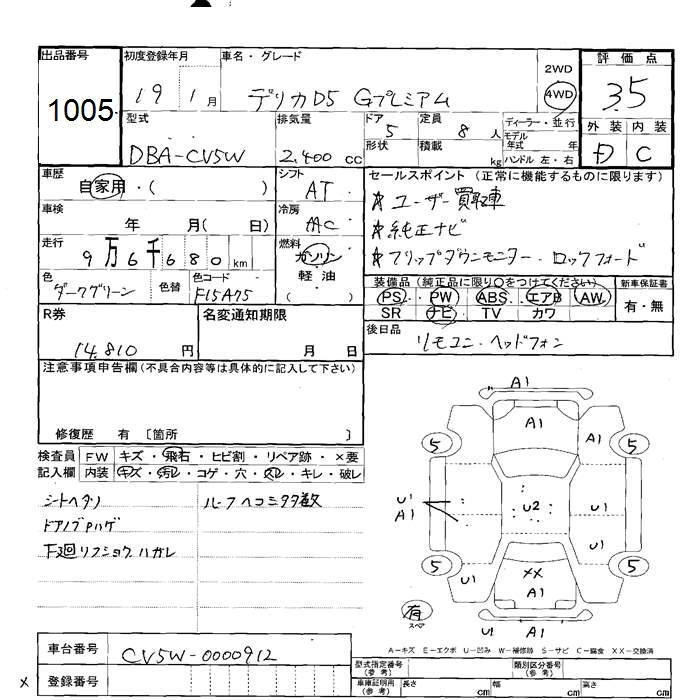 出品番号 1005
初度登録年月 19 1月
車名・グレード デリカD5 Gプレミアム
2WD 4WD
評価点 3.5
型式 DBA-CV5W
排気量 2,400 cc
ドア 5
形状
定員 8 人
積載 kg
ディーラー・並行
モデル年式 年
ハンドル 左・右
外装 内装
D C
車歴 自家用・( )
シフト AT
セールスポイント (正常に機能するものに限ります)
☆ユーザー買取車
☆純正ナビ
☆フリップダウンモニター・ロックフォード
車検 年 月( 日)
冷房 AAC
走行 9万6千680 km
燃料 ガソリン 軽油 ( )
色 ダークグリーン
色替
色コード F15A75
装備品 (純正品に限り○をつけてください)
PS PW ABS エアB AW
SR ナビ TV カワ
新車保証書 有・無
R券 14,810 円
名変通知期限 月 日
後日品 リモコン・ヘッドフォン
注意事項申告欄 (不具合内容等は具体的に記入して下さい)
修復歴 有 〔箇所 〕
検査員記入欄
FW キズ・飛石・ヒビ割・リペア跡・×要
内装 キズ・汚レ・コゲ・穴・スレ・キレ・破レ
シートヘタリ
ルーフヘコミ多数
ドアノブPハゲ
下廻リフショク ハガレ
A1
A1
A1
5 5
U1 A1
U2
U1
U1
5 5
U1
XX
A1
U1 A1
有
スペア
A-キズ E-エクボ U-凹み W-補修跡 S-サビ C-腐食 XX-交換済
車台番号 CV5W-0000912
× 登録番号
型式指定番号 (参考)
類別区分番号 (参考)
車庫証明用 (参考) 長さ cm 幅 cm 高さ cm